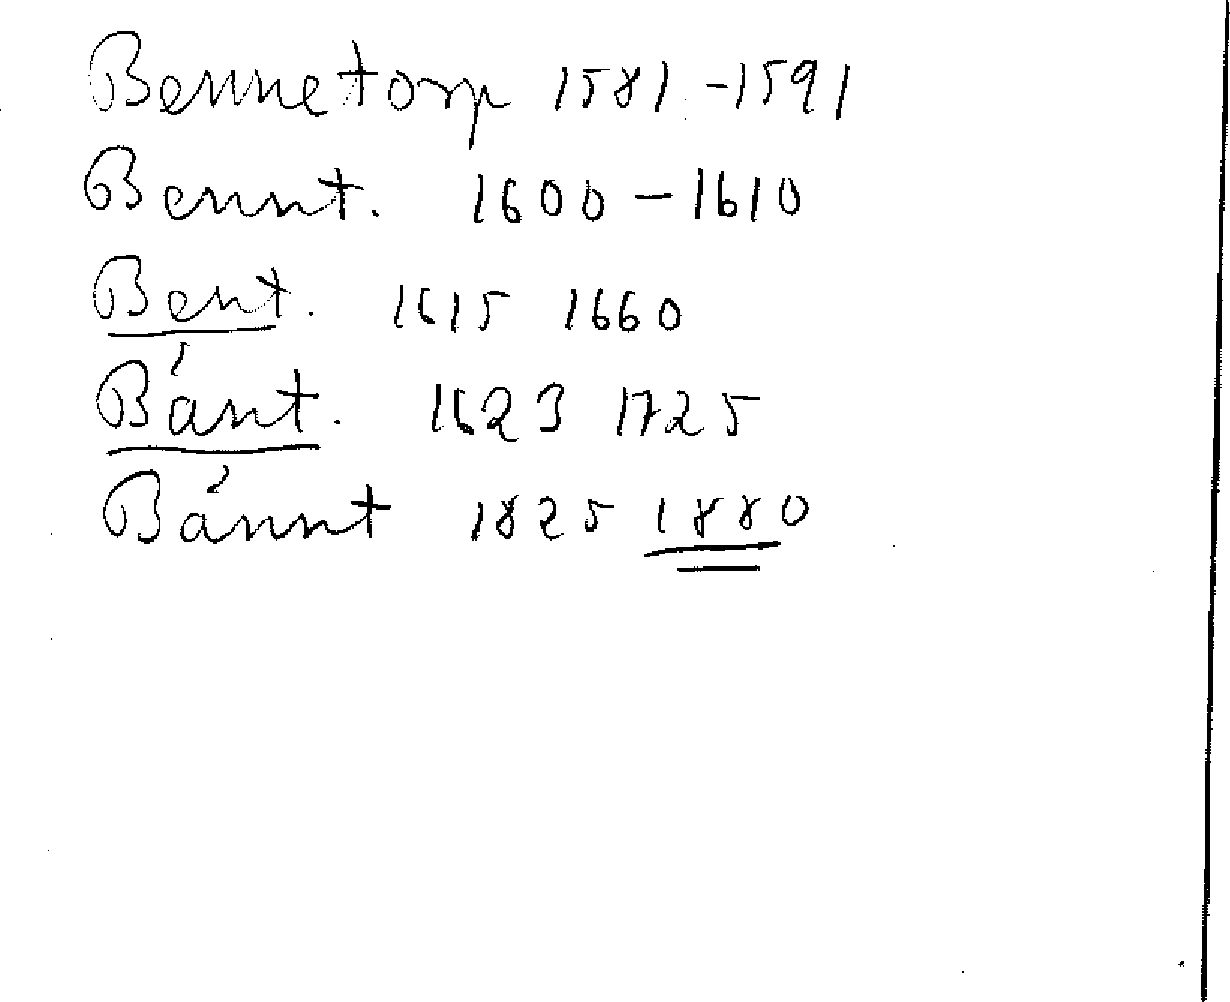 Bennetorp 1581-1591
Bennt. 1600-1610
Bent. 1615 1660
Bánt. 1623 1725
Bánnt 1825 1880